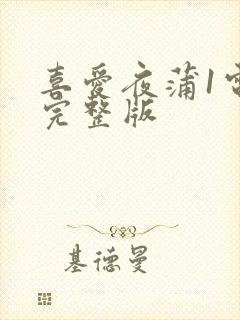 喜爱夜蒲1
完整版
基德曼